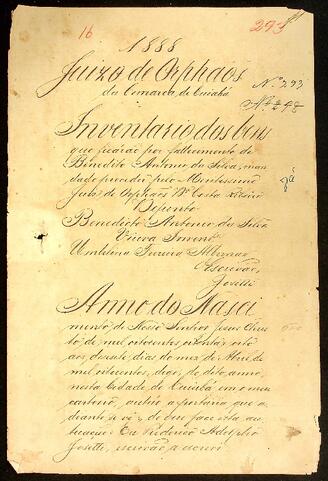 16
293
1888
Juizo de Orphaõs
da Comarca de Cuiabá
Nº 293
Inventario dos bens
que ficarão por fallecimento de
Benedito Antonio da Silva, man
dado proceder pelo Meretissimo
Juiz de Orphaõs Dr Costa Ribeiro
Defunto
Benedicto Antonio da Silva
Viuva Invent.
Umbelina Pereira
Escrivão,
Josetti
Anno do Nasci
mento de Nosso Senhor Jesus Chris
to de mil oitocentos oitenta e oito
aos desesete dias do mez de Abril de
mil oitocentos, digo, do dito anno,
nesta Cidade de Cuiabá em o meu
cartorio, autúo a portaria que a
diante se vê; do que faço esta au
tuação. Eu Frederico Adolpho
Josetti, escrivão a escrevi